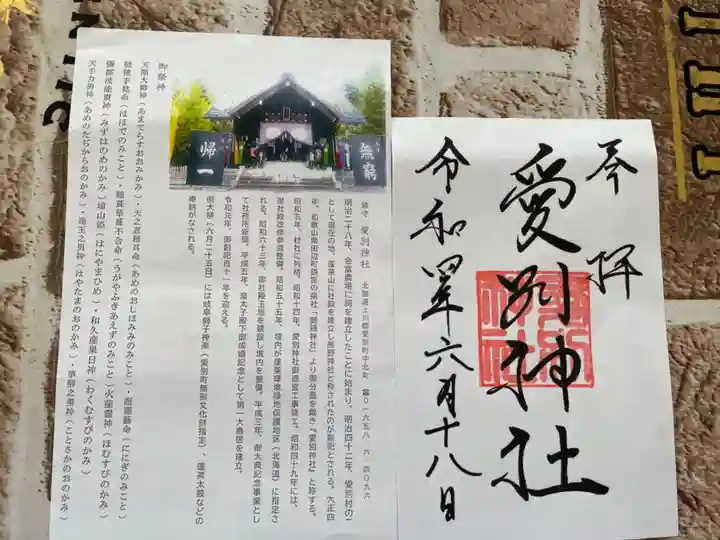 御祭神
天照大御神（あまてらすおおみかみ）・天之忍穂耳命（あめのおしほみみのみこと）・瓊瓊藝命（ににぎのみこと）
穂穂手見命（ほほでのみこと）・鵜萱草葺不合命（うがやふきあえずのみこと）火産霊神（ほむすびのかみ）
彌都波能賣神（みずはのめのかみ）埴山姫（はにやまひめ）・和久産巣日神（わくむすびのかみ）
天手力男神（あめのたぢからおのかみ）・速玉之男神（はやたまのおのかみ）・事解之男神（ことさかのおのかみ）
帰一
無窮
愛別神社
北海道上川郡愛別町字北町
☎０１６５８－６－４０９６
明治二十八年、金富農場に祠を建立したことに始まり、明治四十二年、愛別村の一
として現在の地、蓬莱山に社殿を建立し熊野神社と称されたのが創祀とされる。大正四
年、和歌山県田辺町鎮座の県社「闘鶏神社」より御分霊を戴き『愛別神社』と称する。
昭和五年、村社に列格。昭和十四年、愛別神社御造営工事竣工。昭和四十九年には、
御社殿改修参道整備。昭和五十五年、境内が蓬莱環境緑地保護地区（北海道）に指定さ
れる。昭和六十三年、御社殿玉垣を建設し境内を整備。平成三年、御大典記念事業とし
て社務所新築。平成五年、皇太子殿下御成婚記念として第一大鳥居を建立。
令和元年、御創祀百十一年を迎える。
例大祭（六月二十五日）には岐阜獅子神楽（愛別町無形文化財指定）、蓬莱太鼓などの
奉納がなされる。
奉拝
愛別神社
令和四年六月十八日